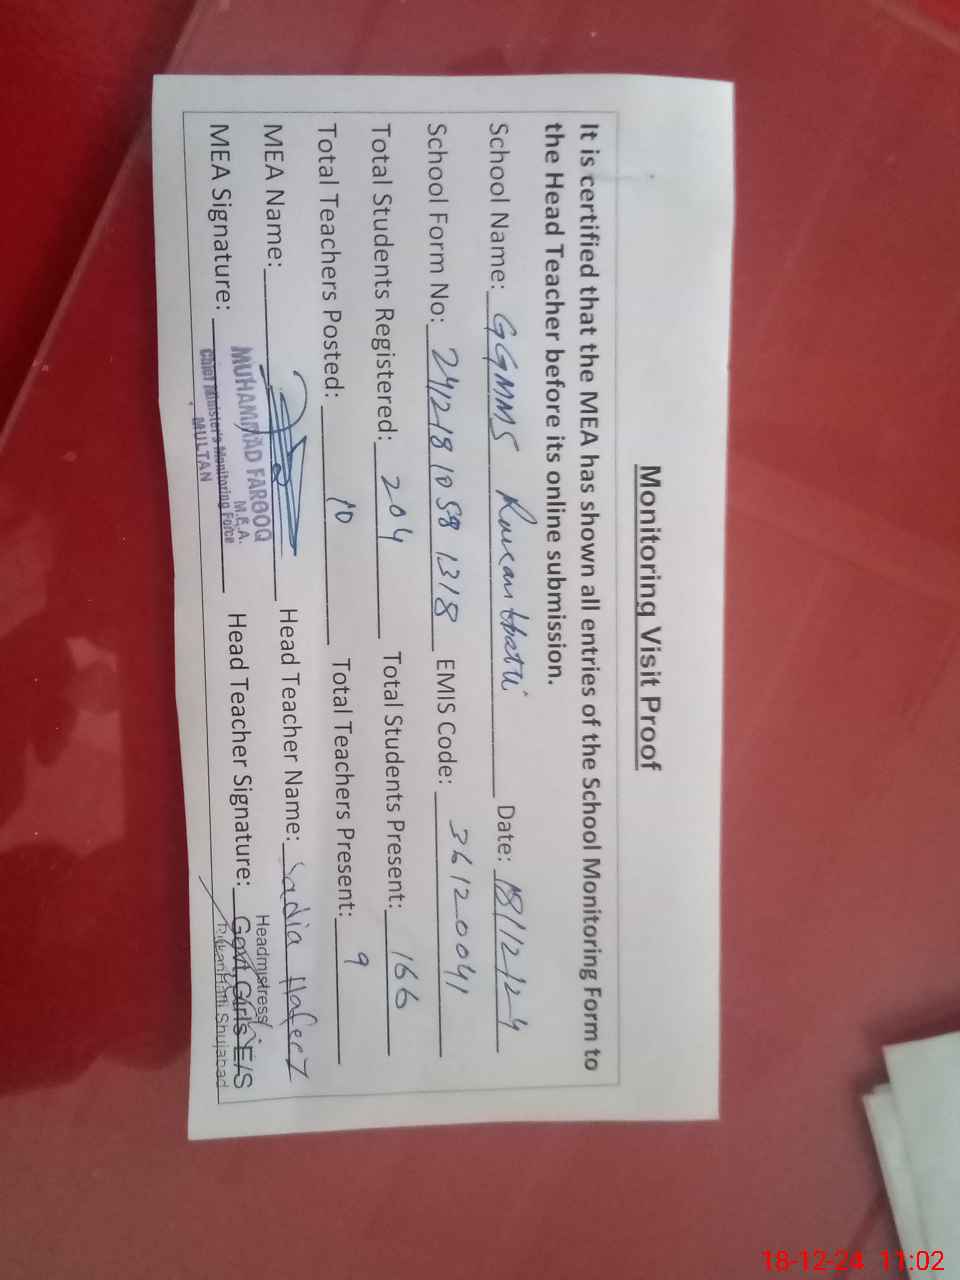 Monitoring Visit Proof
It is certified that the MEA has shown all entries of the School Monitoring Form to
the Head Teacher before its online submission.
School Name: GGMMS Date: 18/12/24
School Form No: EMIS Code: 36120041
Total Students Registered: 204 Total Students Present: 166
Total Teachers Posted: 10 Total Teachers Present: 9
MEA Name: Head Teacher Name: Sadia
MEA Signature: Head Teacher Signature:
MUHAMMAD FAROOQ
M.E.A.
Chief Minister's Monitoring Force
MULTAN
Headmistress
Govt. Girls E/S
Shujabad
18-12-24 11:02